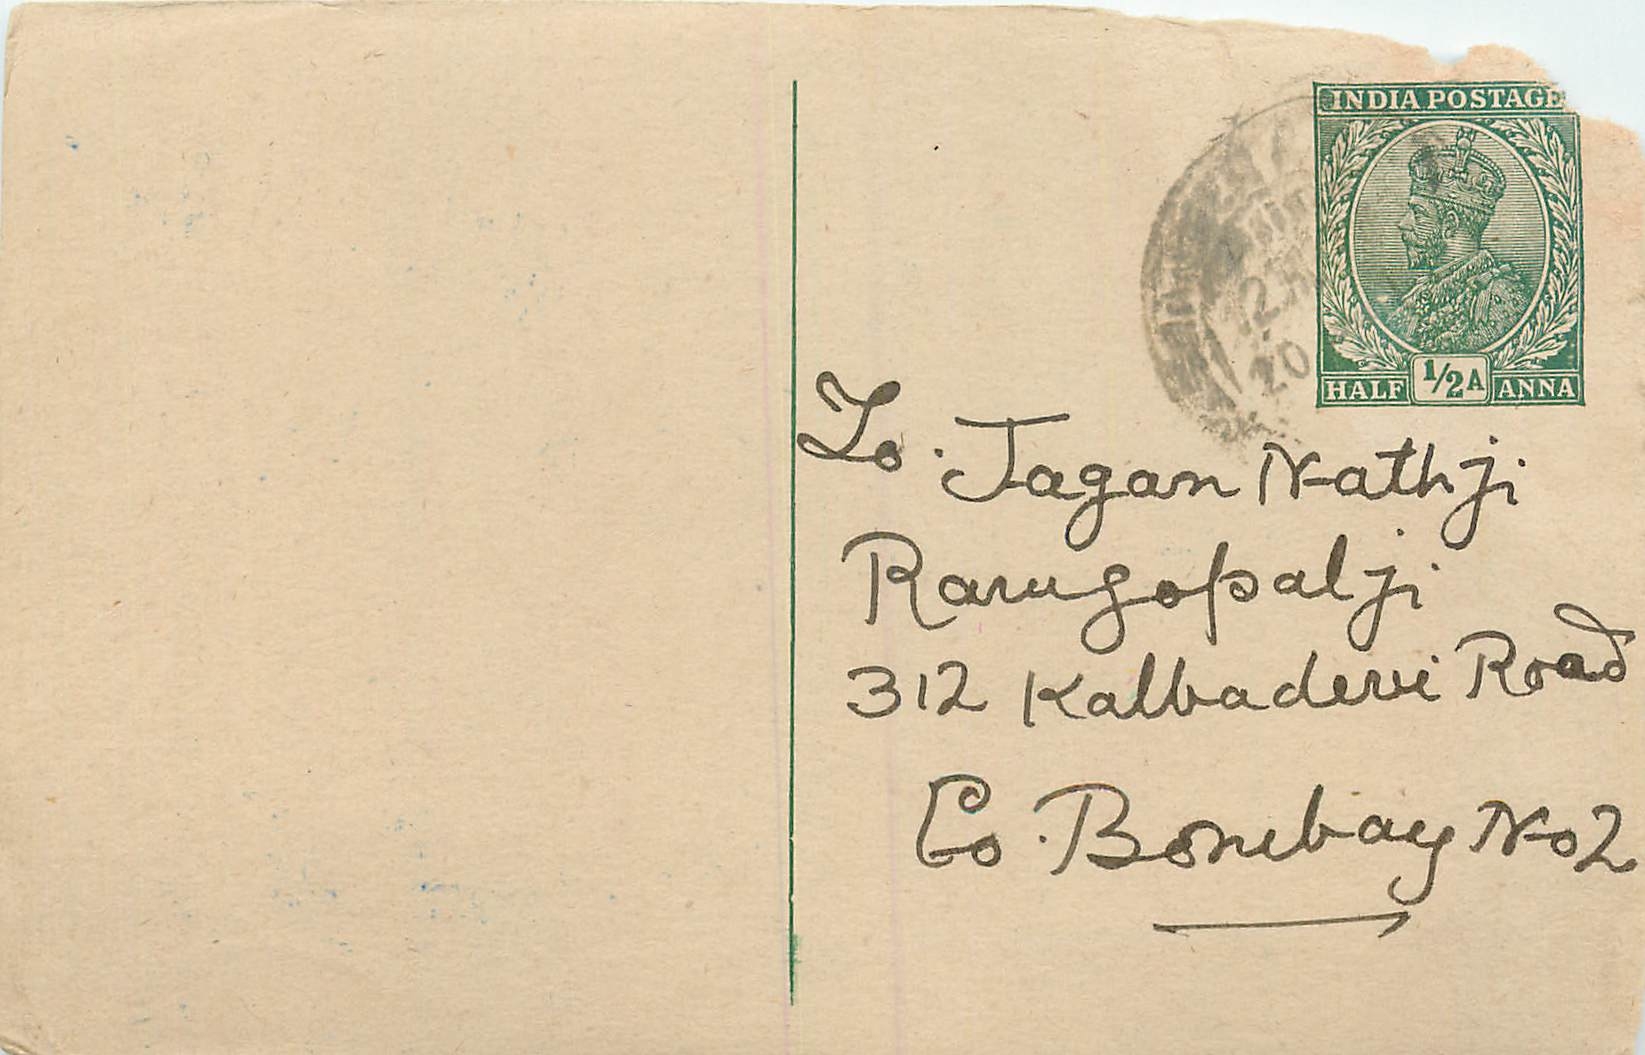 INDIA POSTAGE
HALF 1/2A ANNA
20
To. Jagan Nathji
Ramgopalji
312 Kalbadevi Road
Co. Bombay No 2